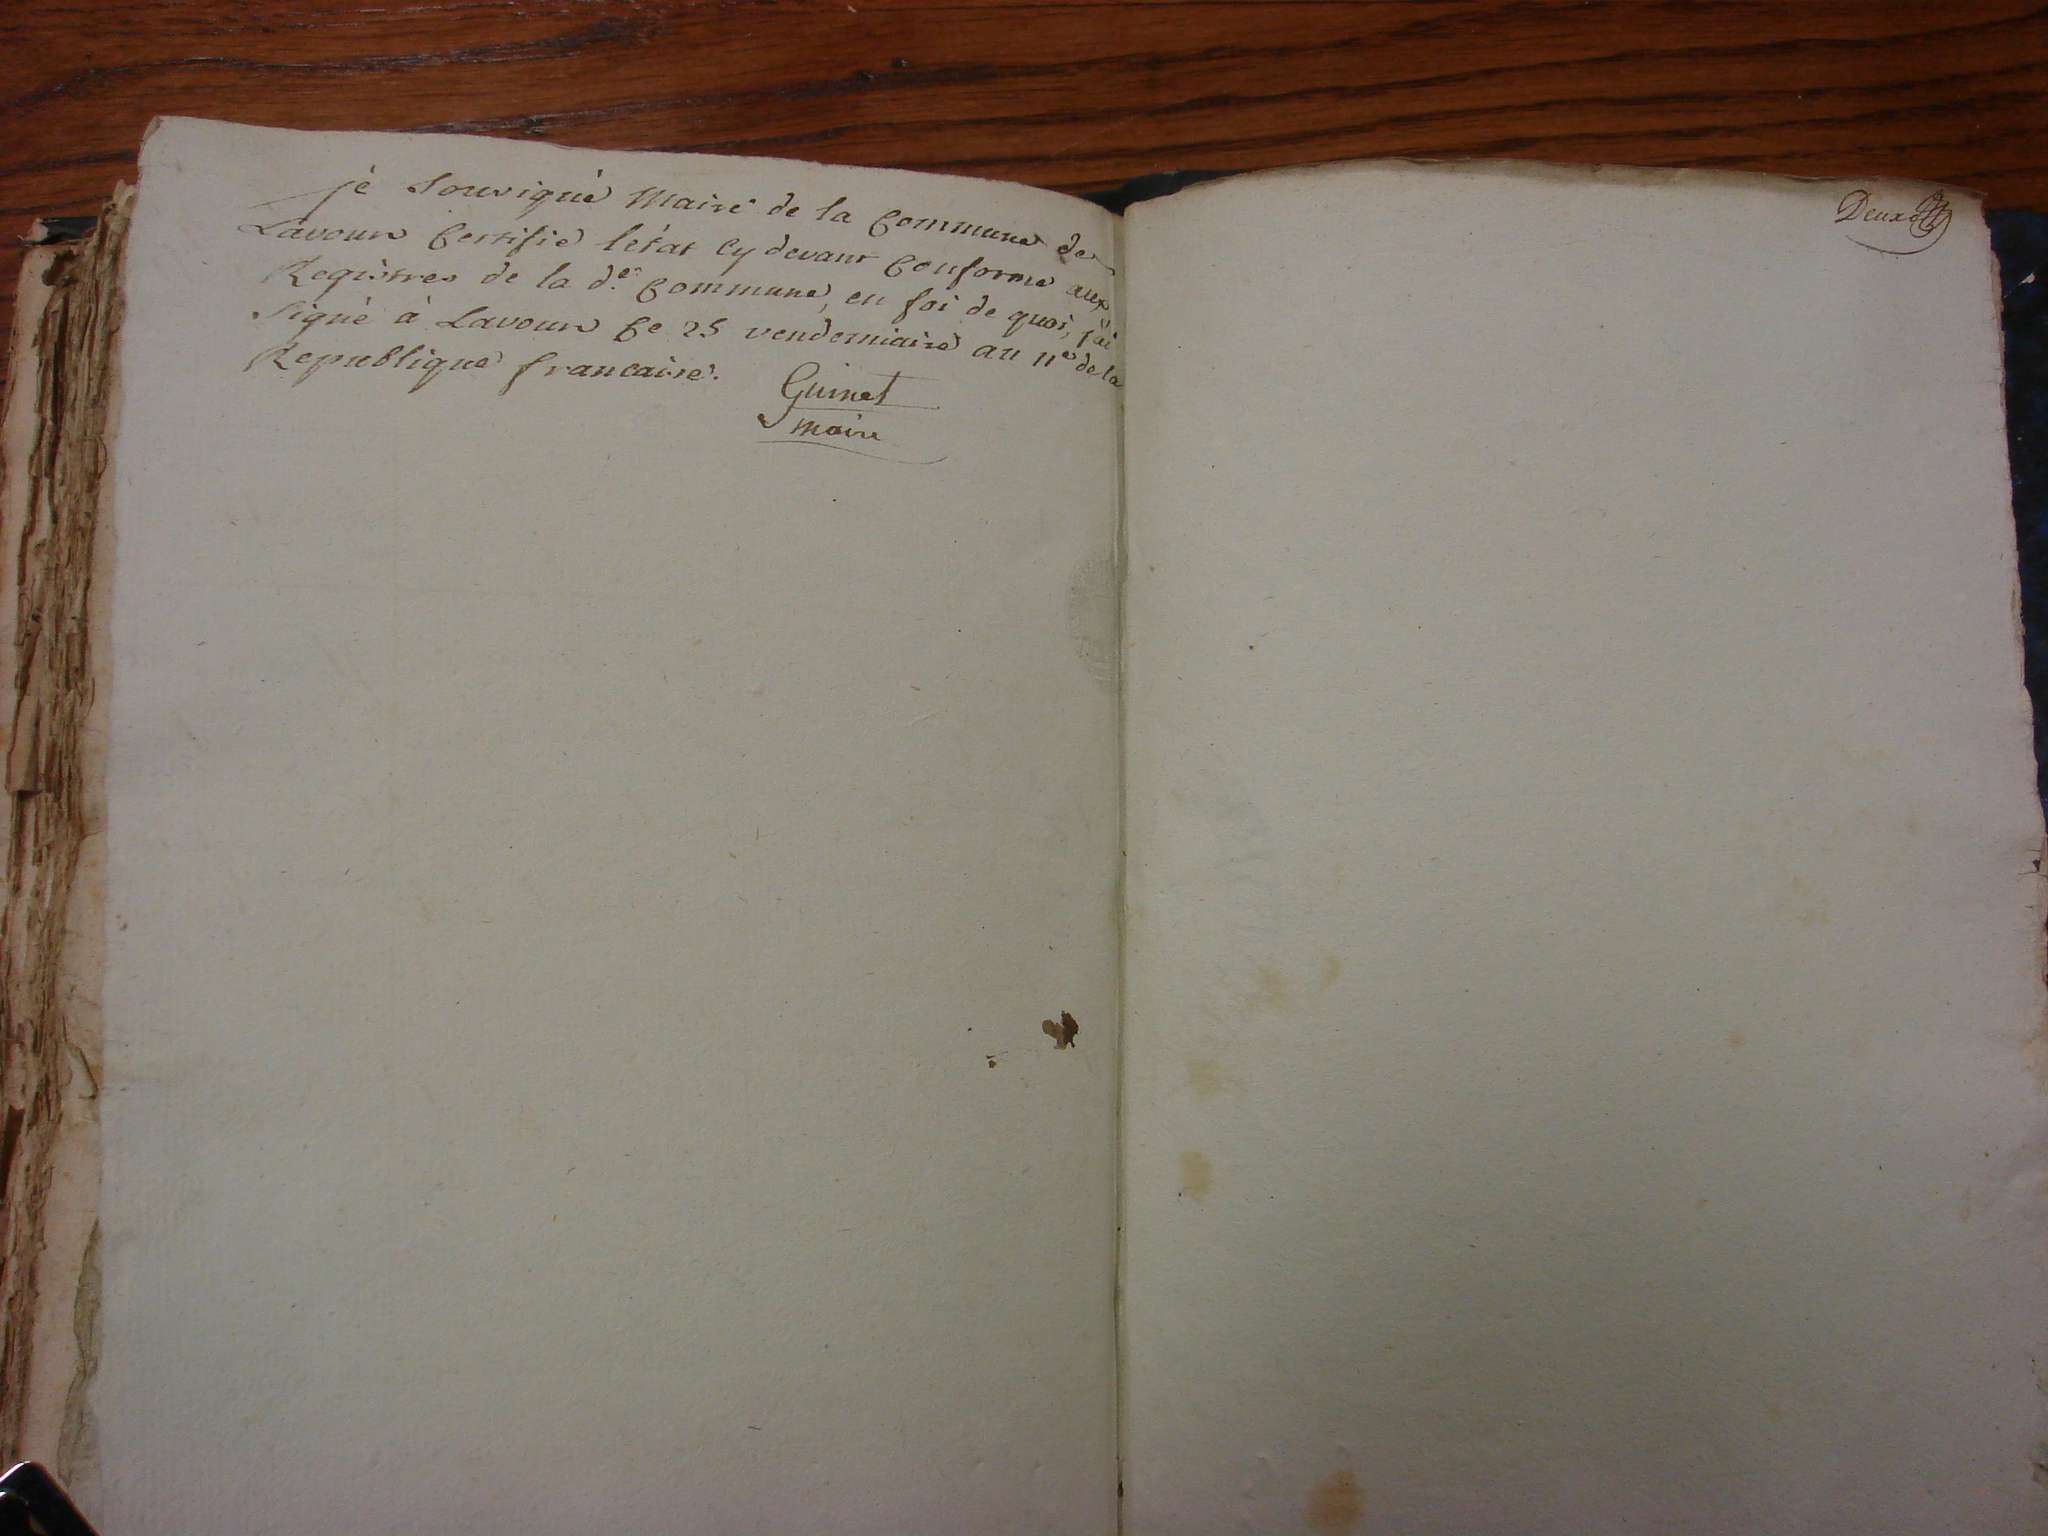 jè Soussigné Maire de la Commune de
Lavours Certifie l'état Cy devant Conforme aux
Registres de la d.e Commune, en foi de quoi, j'ai
Signé à Lavours Ce 25 vendemiaire an 11e de la
Republique francaise.
Guinet
maire
Deux